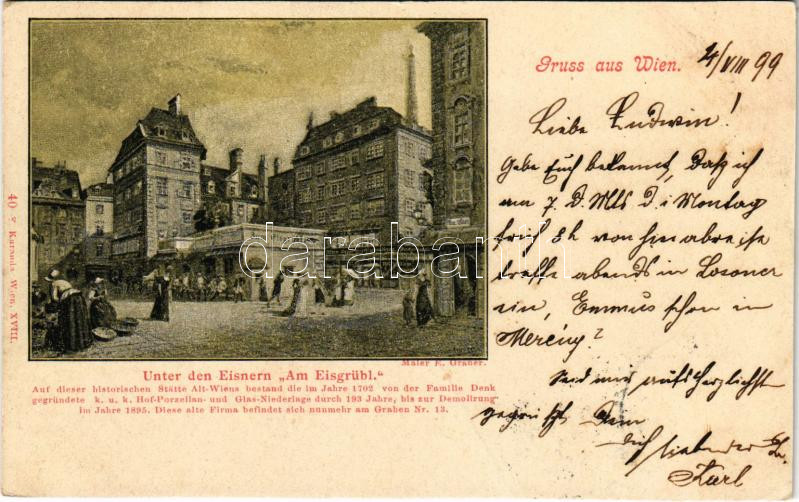 Gruss aus Wien.
4/VIII 99
Liebe Ludwin!
Gebe Euch bekannt, daß ich
am 7. d. Mts d. i Montag
früh 8h von hier abreise
treffe abends in Losoncz
ein, Emmus schon in
Merény?
Seid mir aufs herzlichst
gegrüßt
Dich liebender
Karl
40 Karnolz Wien, XVIII.
darabanth
Maler E. Graner.
Unter den Eisnern „Am Eisgrübl.“
Auf dieser historischen Stätte Alt-Wiens bestand die im Jahre 1702 von der Familie Denk
gegründete k. u. k. Hof-Porzellan- und Glas-Niederlage durch 193 Jahre, bis zur Demolirung
im Jahre 1895. Diese alte Firma befindet sich nunmehr am Graben Nr. 13.